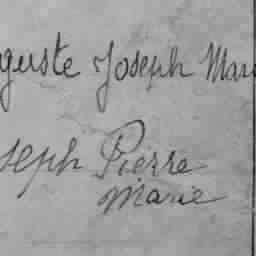 guste Joseph Mari
seph Pierre
Marie